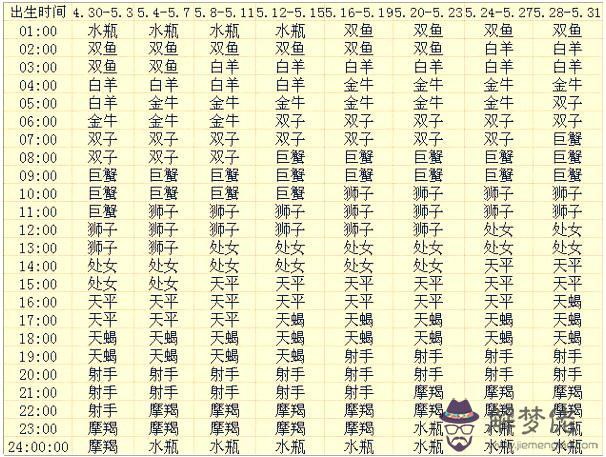 出生时间 4.30-5.3 5.4-5.7 5.8-5.11 5.12-5.15 5.16-5.19 5.20-5.23 5.24-5.27 5.28-5.31
01:00 水瓶 水瓶 水瓶 水瓶 双鱼 双鱼 双鱼 双鱼
02:00 双鱼 双鱼 双鱼 双鱼 双鱼 双鱼 白羊 白羊
03:00 双鱼 双鱼 白羊 白羊 白羊 白羊 白羊 白羊
04:00 白羊 白羊 白羊 白羊 金牛 金牛 金牛 金牛
05:00 白羊 金牛 金牛 金牛 金牛 金牛 金牛 双子
06:00 金牛 金牛 金牛 双子 双子 双子 双子 双子
07:00 双子 双子 双子 双子 双子 双子 双子 巨蟹
08:00 双子 双子 双子 巨蟹 巨蟹 巨蟹 巨蟹 巨蟹
09:00 巨蟹 巨蟹 巨蟹 巨蟹 巨蟹 巨蟹 巨蟹 巨蟹
10:00 巨蟹 巨蟹 巨蟹 巨蟹 狮子 狮子 狮子 狮子
11:00 巨蟹 狮子 狮子 狮子 狮子 狮子 狮子 狮子
12:00 狮子 狮子 狮子 狮子 狮子 狮子 处女 处女
13:00 狮子 狮子 处女 处女 处女 处女 处女 处女
14:00 处女 处女 处女 处女 处女 处女 天平 天平
15:00 处女 处女 天平 天平 天平 天平 天平 天平
16:00 天平 天平 天平 天平 天平 天平 天平 天蝎
17:00 天平 天平 天平 天蝎 天蝎 天蝎 天蝎 天蝎
18:00 天蝎 天蝎 天蝎 天蝎 天蝎 天蝎 天蝎 天蝎
19:00 天蝎 天蝎 天蝎 天蝎 射手 射手 射手 射手
20:00 射手 射手 射手 射手 射手 射手 射手 射手
21:00 射手 射手 射手 射手 射手 摩羯 摩羯 摩羯
22:00 射手 摩羯 摩羯 摩羯 摩羯 摩羯 摩羯 摩羯
23:00 摩羯 摩羯 摩羯 摩羯 摩羯 水瓶 水瓶 水瓶
24:00:00 摩羯 水瓶 水瓶 水瓶 水瓶 水瓶 水瓶 水瓶
解梦佬